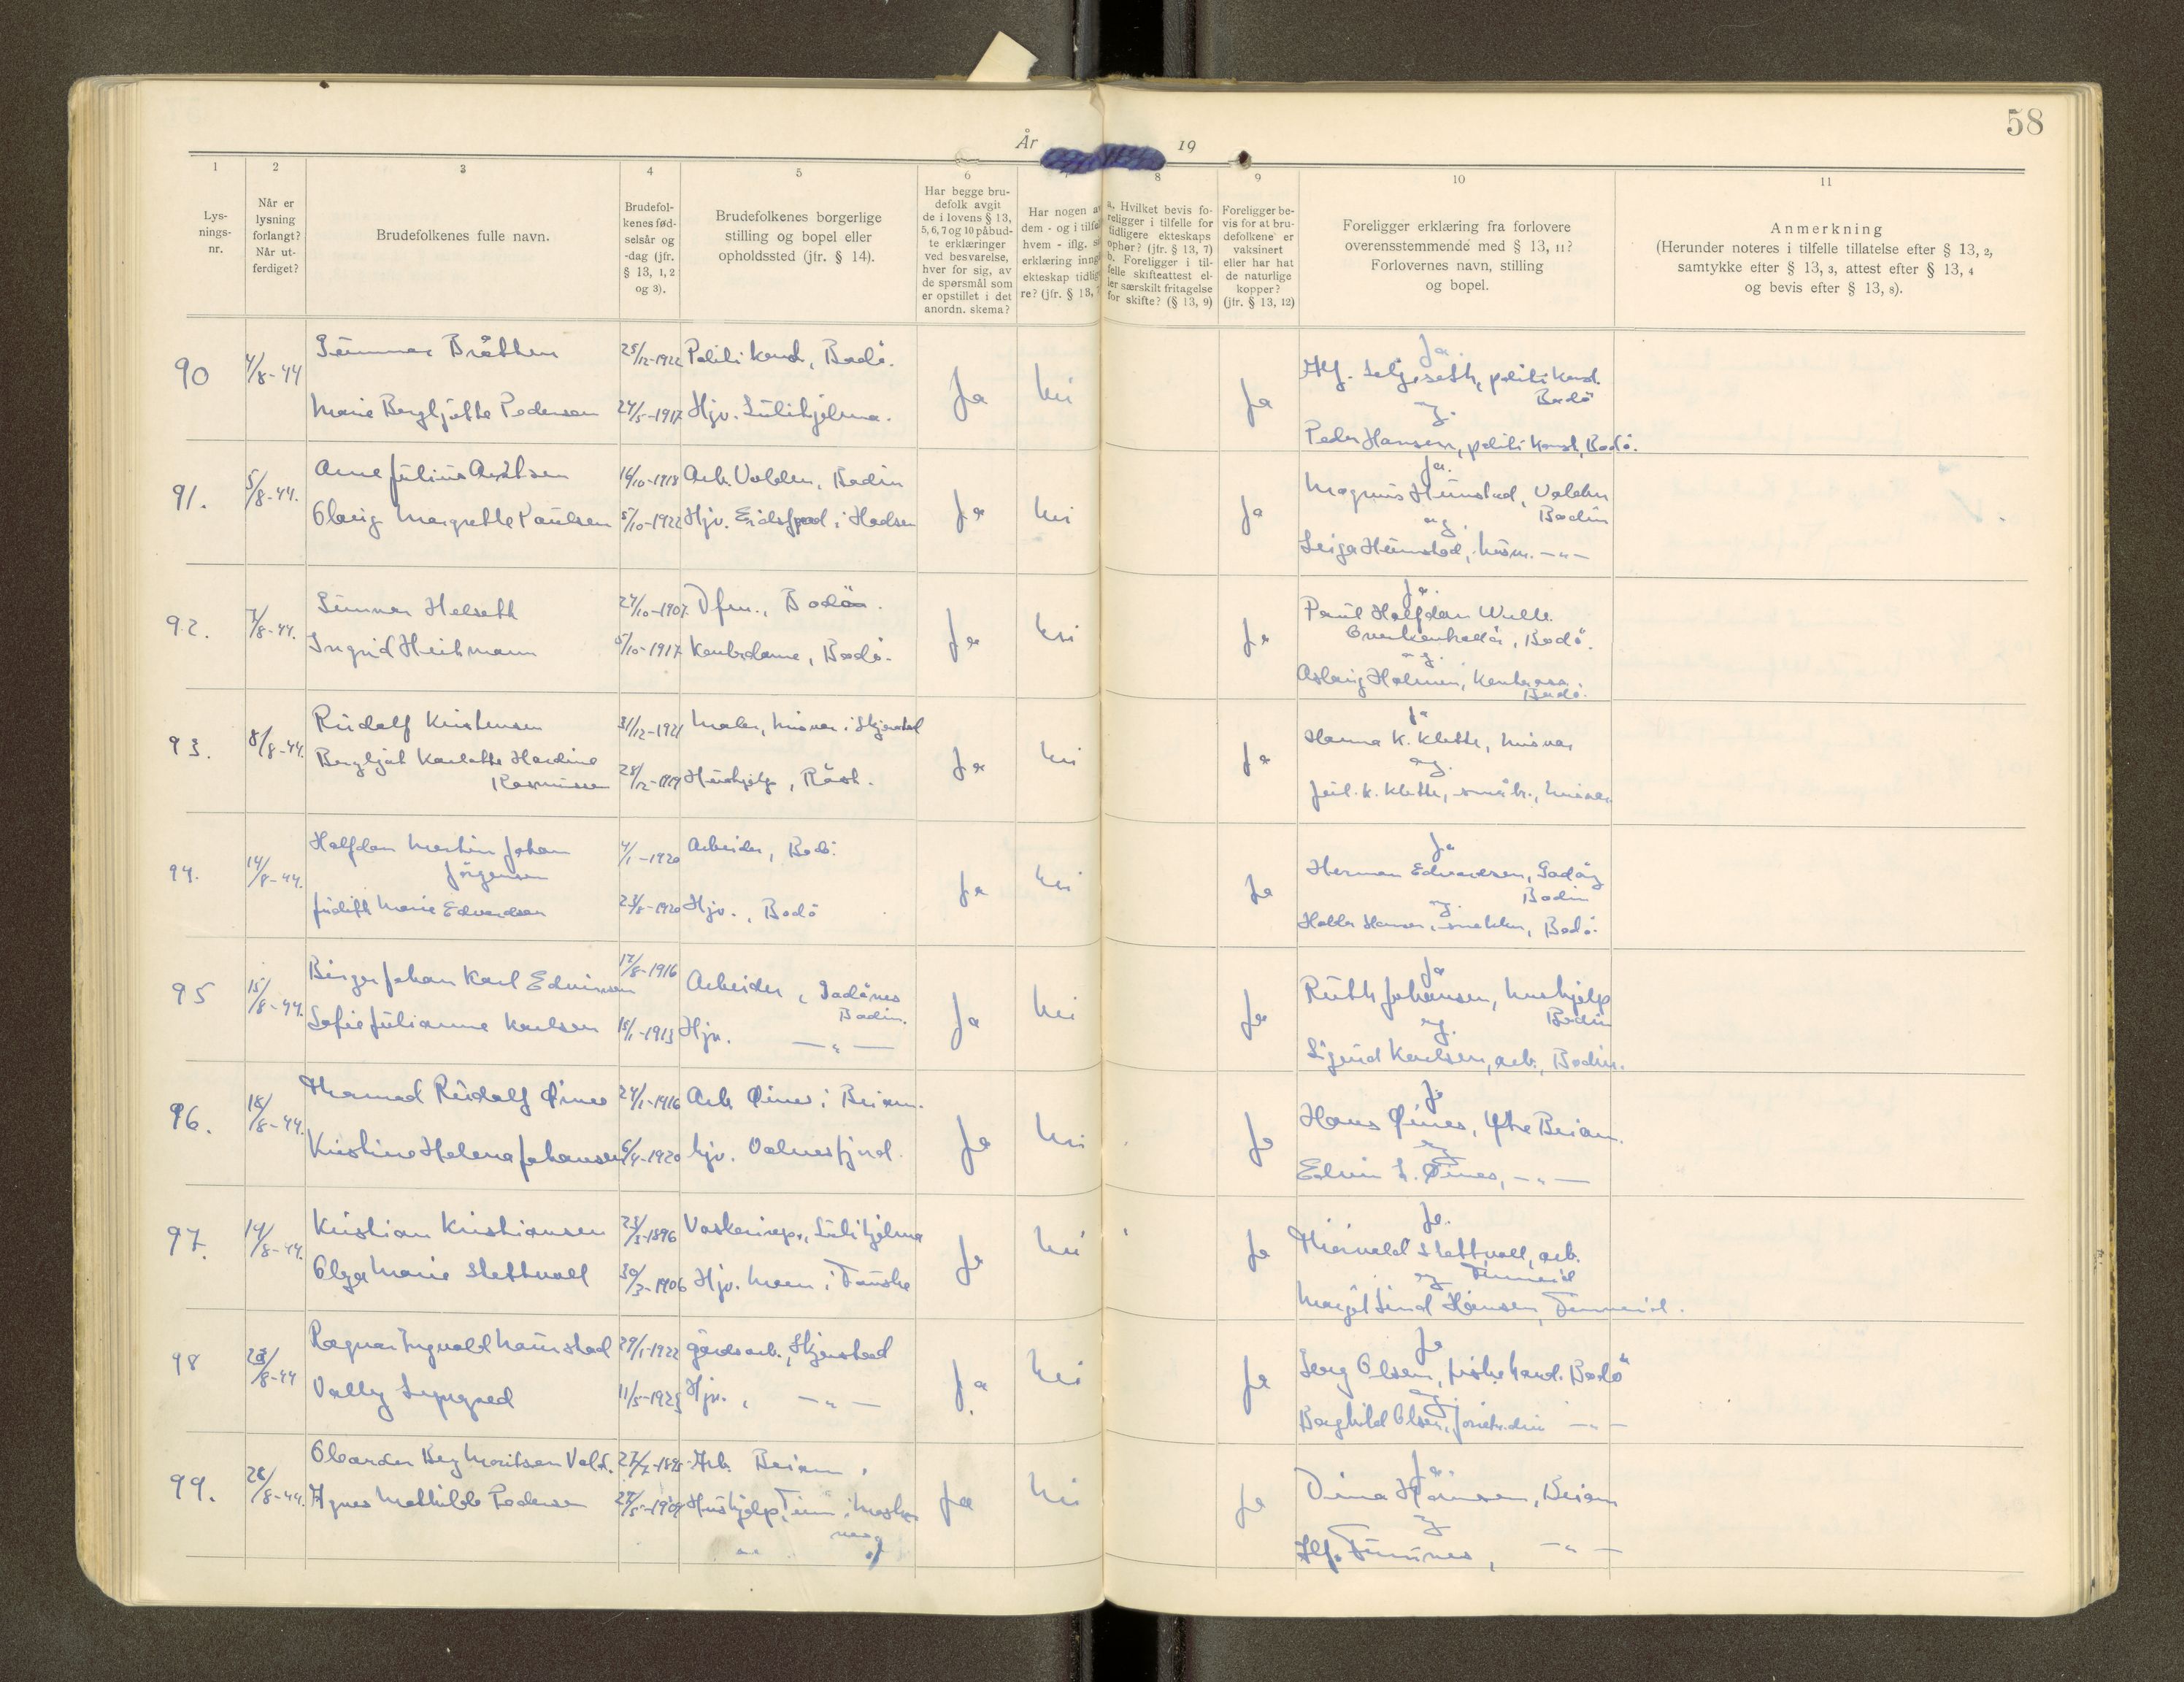 58
År 19
1 2 3 4 5 6 7 8 9 10 11
Lys-
nings-
nr.
Når er
lysning
forlangt?
Når ut-
ferdiget?
Brudefolkenes fulle navn.
Brudefol-
kenes fød-
selsår og
-dag (jfr.
§ 13, 1, 2
og 3).
Brudefolkenes borgerlige
stilling og bopel eller
opholdssted (jfr. § 14).
Har begge bru-
defolk avgit
de i lovens § 13,
5, 6, 7 og 10 påbud-
te erklæringer
ved besvarelse,
hver for sig, av
de spørsmål som
er opstillet i det
anordn. skema?
Har nogen av
dem - og i tilfe
hvem - iflg. s
erklæring inng
ekteskap tidlig
re? (jfr. § 13, 7
a. Hvilket bevis fo-
religger i tilfelle for
tidligere ekteskaps
ophør? (jfr. § 13, 7)
b. Foreligger i til-
felle skifteattest el-
ler særskilt fritagelse
for skifte? (§ 13, 9)
Foreligger be-
vis for at bru-
defolkene er
vaksinert
eller har hat
de naturlige
kopper?
(jfr. § 13, 12)
Foreligger erklæring fra forlovere
overensstemmende med § 13, 11?
Forlovernes navn, stilling
og bopel.
Anmerkning
(Herunder noteres i tilfelle tillatelse efter § 13, 2,
samtykke efter § 13, 3, attest efter § 13, 4
og bevis efter § 13, 8).
90 4/8-44 Gunnar Bråthen 25/12-1922 Politikonst., Bodö.
Marie Bergljotte Pedersen 24/5-1917 Hjv. Sulitjelma.
Ja Nei Ja
Ja.
Alf. Seljeseth, politikonst.
Bodö
og.
Peder Hansen, politikonst, Bodö.
91. 5/8-44. Arne Julius 16/10-1918 Arb. Valdem, Bodin
Olaug Margrethe Paulsen 5/10-1922 Hjv. Eidsfjord i Hadsel
Ja Nei Ja
Ja.
Magnus Hunstad,
Bodin
og.
Hunstad, husm. -"-
92. 7/8-44. Gunnar Helseth 24/10-1907. Dfm., Bodö.
Ingrid Heitmann 5/10-1917 Kontordame, Bodö.
Ja Nei Ja
Ja.
Paul Halfdan
Bodö.
og.
Aslaug Kontorass.
Bodö.
93. 8/8-44. Rudolf Kristensen 31/12-1921 Maler, Misvær i Skjerstad
Bergljot Karlotte Hardine
Rasmussen 28/12-1919 Hushjelp, Röst.
Ja Nei Ja
Ja
Hanna K. Klette, Misvær
og.
Jul. K. Klette, småbr., Misvær
94. 14/8-44. Halfdan Martin Johan
Jörgensen 4/1-1920 Arbeider, Bodö.
Judith Marie Edvardsen 23/8-1920 Hjv., Bodö
Ja Nei Ja
Ja
Herman Edvardsen,
Bodin
og.
Hansen, snekker, Bodö.
95 15/8-44. Birger Johan Karl Edvinsen 17/8-1916 Arbeider,
Bodin.
Sofie Julianne Karlsen 15/1-1913 Hjv. -"-
Ja Nei Ja
Ja
Ruth Johansen, hushjelp
Bodin
og.
Sigurd Karlsen, arb., Bodin.
96. 18/8-44. Thomod Rudolf Øines 24/1-1916 Arb. Øines i Beiarn.
Kristine Helena Johansen 6/4-1920 hjv. Valnesfjord.
Ja Nei Ja
Ja
Hans Øines, Beiarn.
og
Edvin S. Øines, -"-
97. 19/8-44. Kristian Kristiansen 23/3-1896 Vaskerirep., Sulitjelma
Olga Marie Slettvoll 30/3-1906 Hjv. Moen i Fauske
Ja Nei Ja
Ja.
Thorvald Slettvoll, arb.
og Finneid
Margit Lind Hansen, Finneid.
98 23/8-44 Ragnar Ingvald Naurstad 29/1-1922 gårdsarb., Skjerstad
Vally Lyngved 11/5-1923 Hjv., -"-
Ja Nei Ja
Ja
Olsen, fiskehand. Bodö
og
Borghild Olsen, -"-
99. 26/8-44. Oleander Berg Moritsen 27/7-1895 Arb. Beiarn.
Agnes Mathilde Pedersen 27/5-1909 Hushjelp,
Ja Nei Ja
Ja
Dina Hansen, Beiarn
og
Alf. -"-